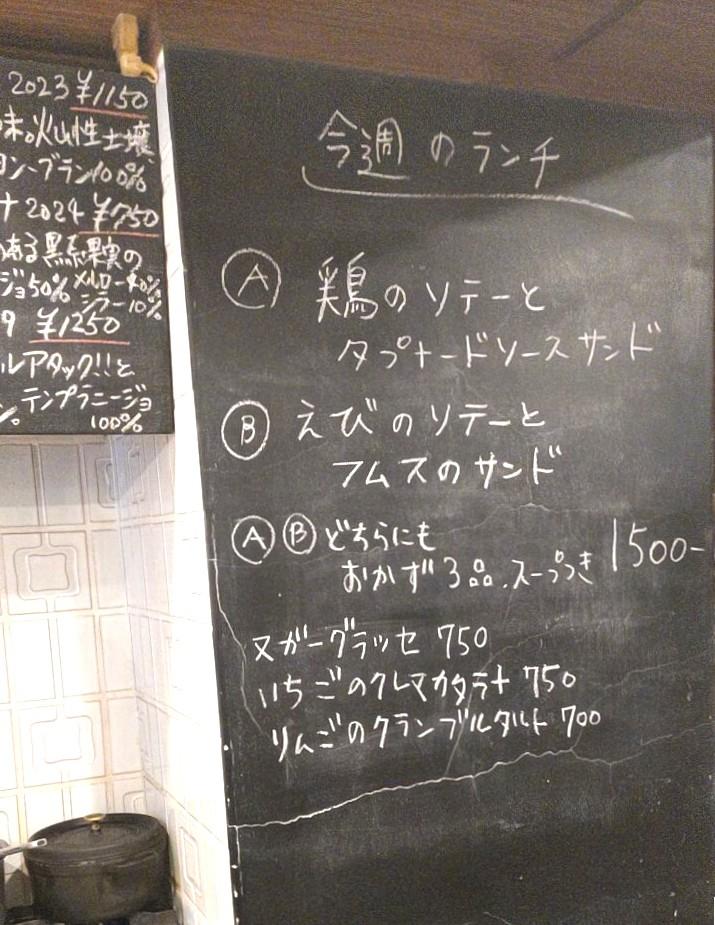 2023 ¥1150
味。火山性土壌
ン・ブラン100%
ナ 2024 ¥750
ある黒系果実の
ジョ50% メルロー40%
シラー10%
9 ¥1250
ルアタック!!と
テンプラニージョ
100%
今週のランチ
Ⓐ 鶏のソテーと
タプナードソースサンド
Ⓑ えびのソテーと
フムスのサンド
Ⓐ Ⓑ どちらにも
おかず3品、スープつき 1500-
ヌガーグラッセ 750
いちごのクレマカタラナ 750
りんごのクランブルタルト 700